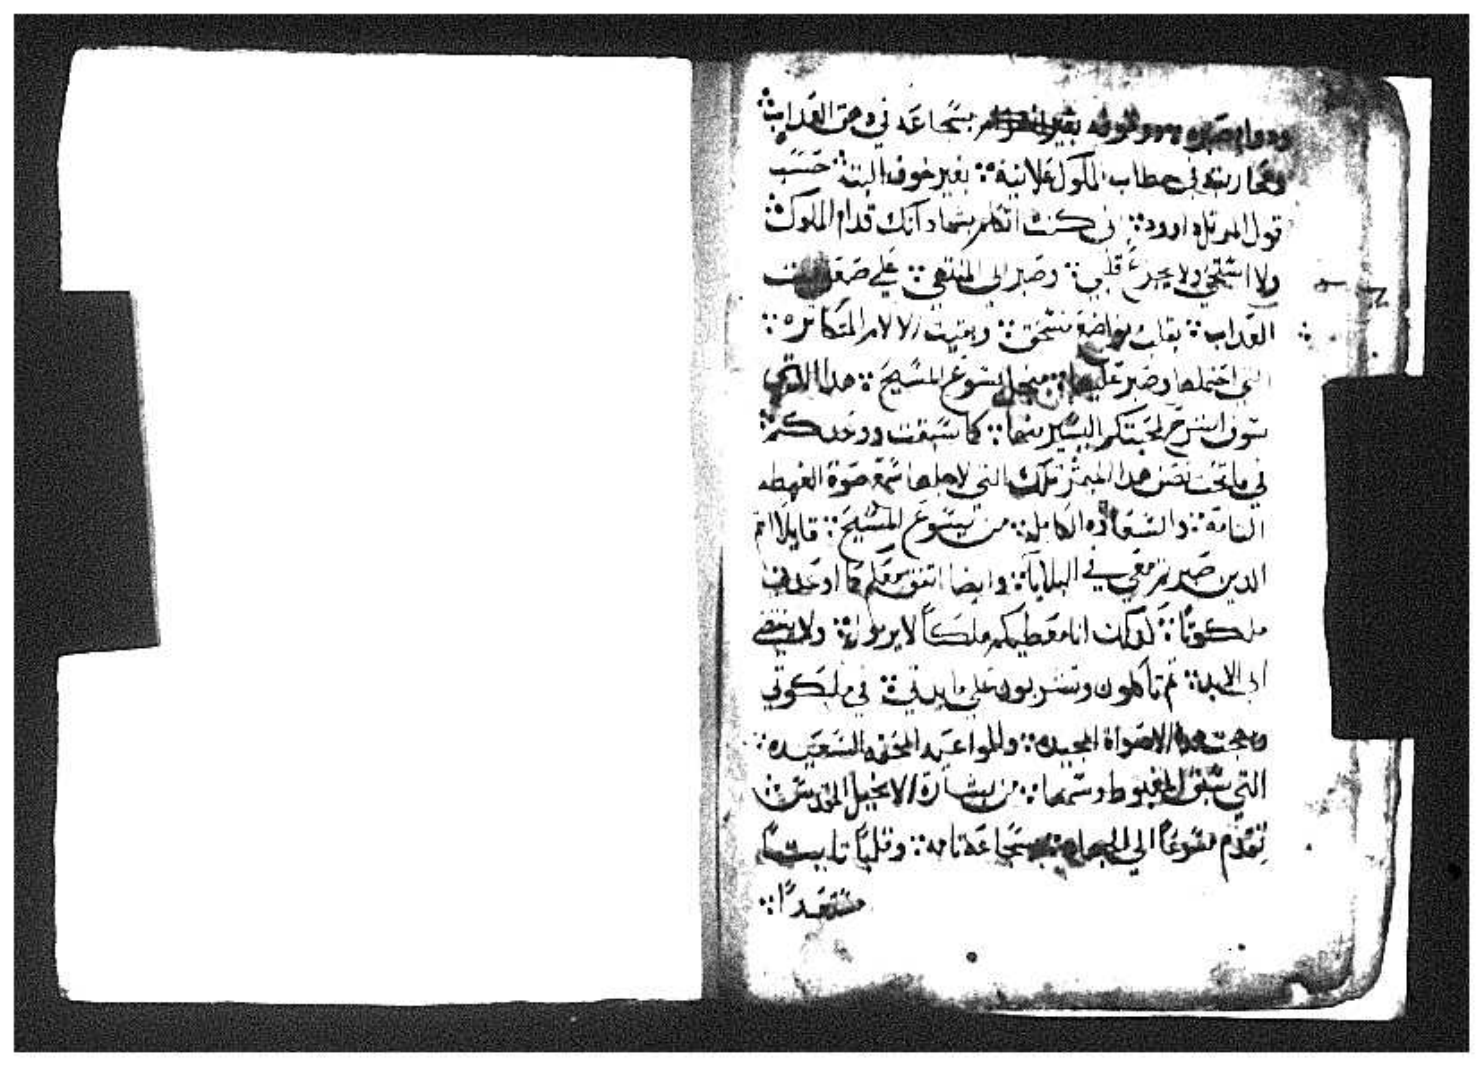 بشجاعه في وقت العداب
في خطاب الملوك علانية ؞ بغير خوف البتة ؞ حسب
قول المرتل داوود ؞ اني كنت اتكلم بشهاداتك قدام الملوك ؞
ولا استحي ولا يجزع قلبي ؞ وصبر الي المنتهي ؞ علي
العداب ؞ بقلب متواضع منسحق ؞ وبقيت الالام المتكاتره ؞
التي احتملها وصبر عليها ؞ منجل يسوع المسيح ؞ هدا الدي
سوف اشرح لمحبتكم اليسير منها ؞ كما سبقت ووعدتكم ؞
في ما تحت نصف هدا الميمر تلك التي لاجلها سمع صوة الغبطه
التامة ؞ والسعاده الكامله ؞ من يسوع المسيح ؞ قايلا انتم
الدين صبرتم معي في البلايا ؞ وايضا اتفق معكم كما اوعدني
ملكوتا ؞ كدلك انا معطيكم ملكا لا يزول ؞ ولا ينقضي
الي الابد ؞ ثم تاكلون وتشربون علي مايدتي ؞ في ملكوتي
هدا الاصواة المجيده ؞ والمواعيد المحقه السعيده ؞
التي سبق المغبوط وسمعها ؞ من بشارة الانجيل المقدس ؞
تقدم مسرعا الي الجهاد ؞ بشجاعة تامه ؞ وقلبا تابيتا
مستعدا ؞